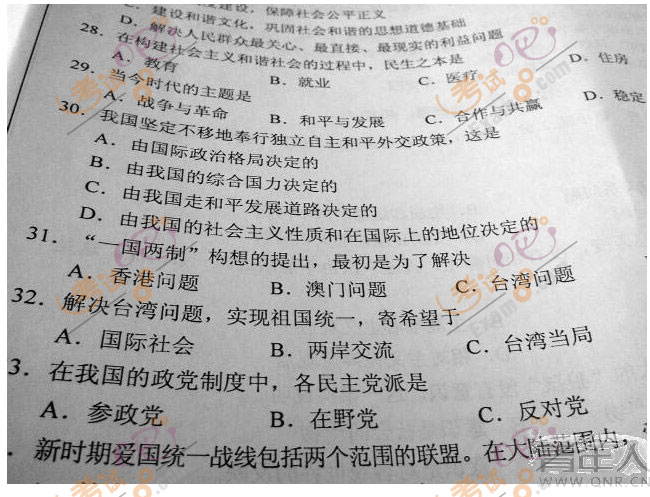 建设，保障社会公平正义
C．建设和谐文化，巩固社会和谐的思想道德基础
D．解决人民群众最关心、最直接、最现实的利益问题
28．在构建社会主义和谐社会的过程中，民生之本是
A．教育 B．就业 C．医疗 D．住房
29．当今时代的主题是
A．战争与革命 B．和平与发展 C．合作与共赢 D．稳定
30．我国坚定不移地奉行独立自主和平外交政策，这是
A．由国际政治格局决定的
B．由我国的综合国力决定的
C．由我国走和平发展道路决定的
D．由我国的社会主义性质和在国际上的地位决定的
31．“一国两制”构想的提出，最初是为了解决
A．香港问题 B．澳门问题 C．台湾问题
32．解决台湾问题，实现祖国统一，寄希望于
A．国际社会 B．两岸交流 C．台湾当局
3．在我国的政党制度中，各民主党派是
A．参政党 B．在野党 C．反对党
．新时期爱国统一战线包括两个范围的联盟。在大陆范围内，
考试吧
青年人
WWW.QNR.CN